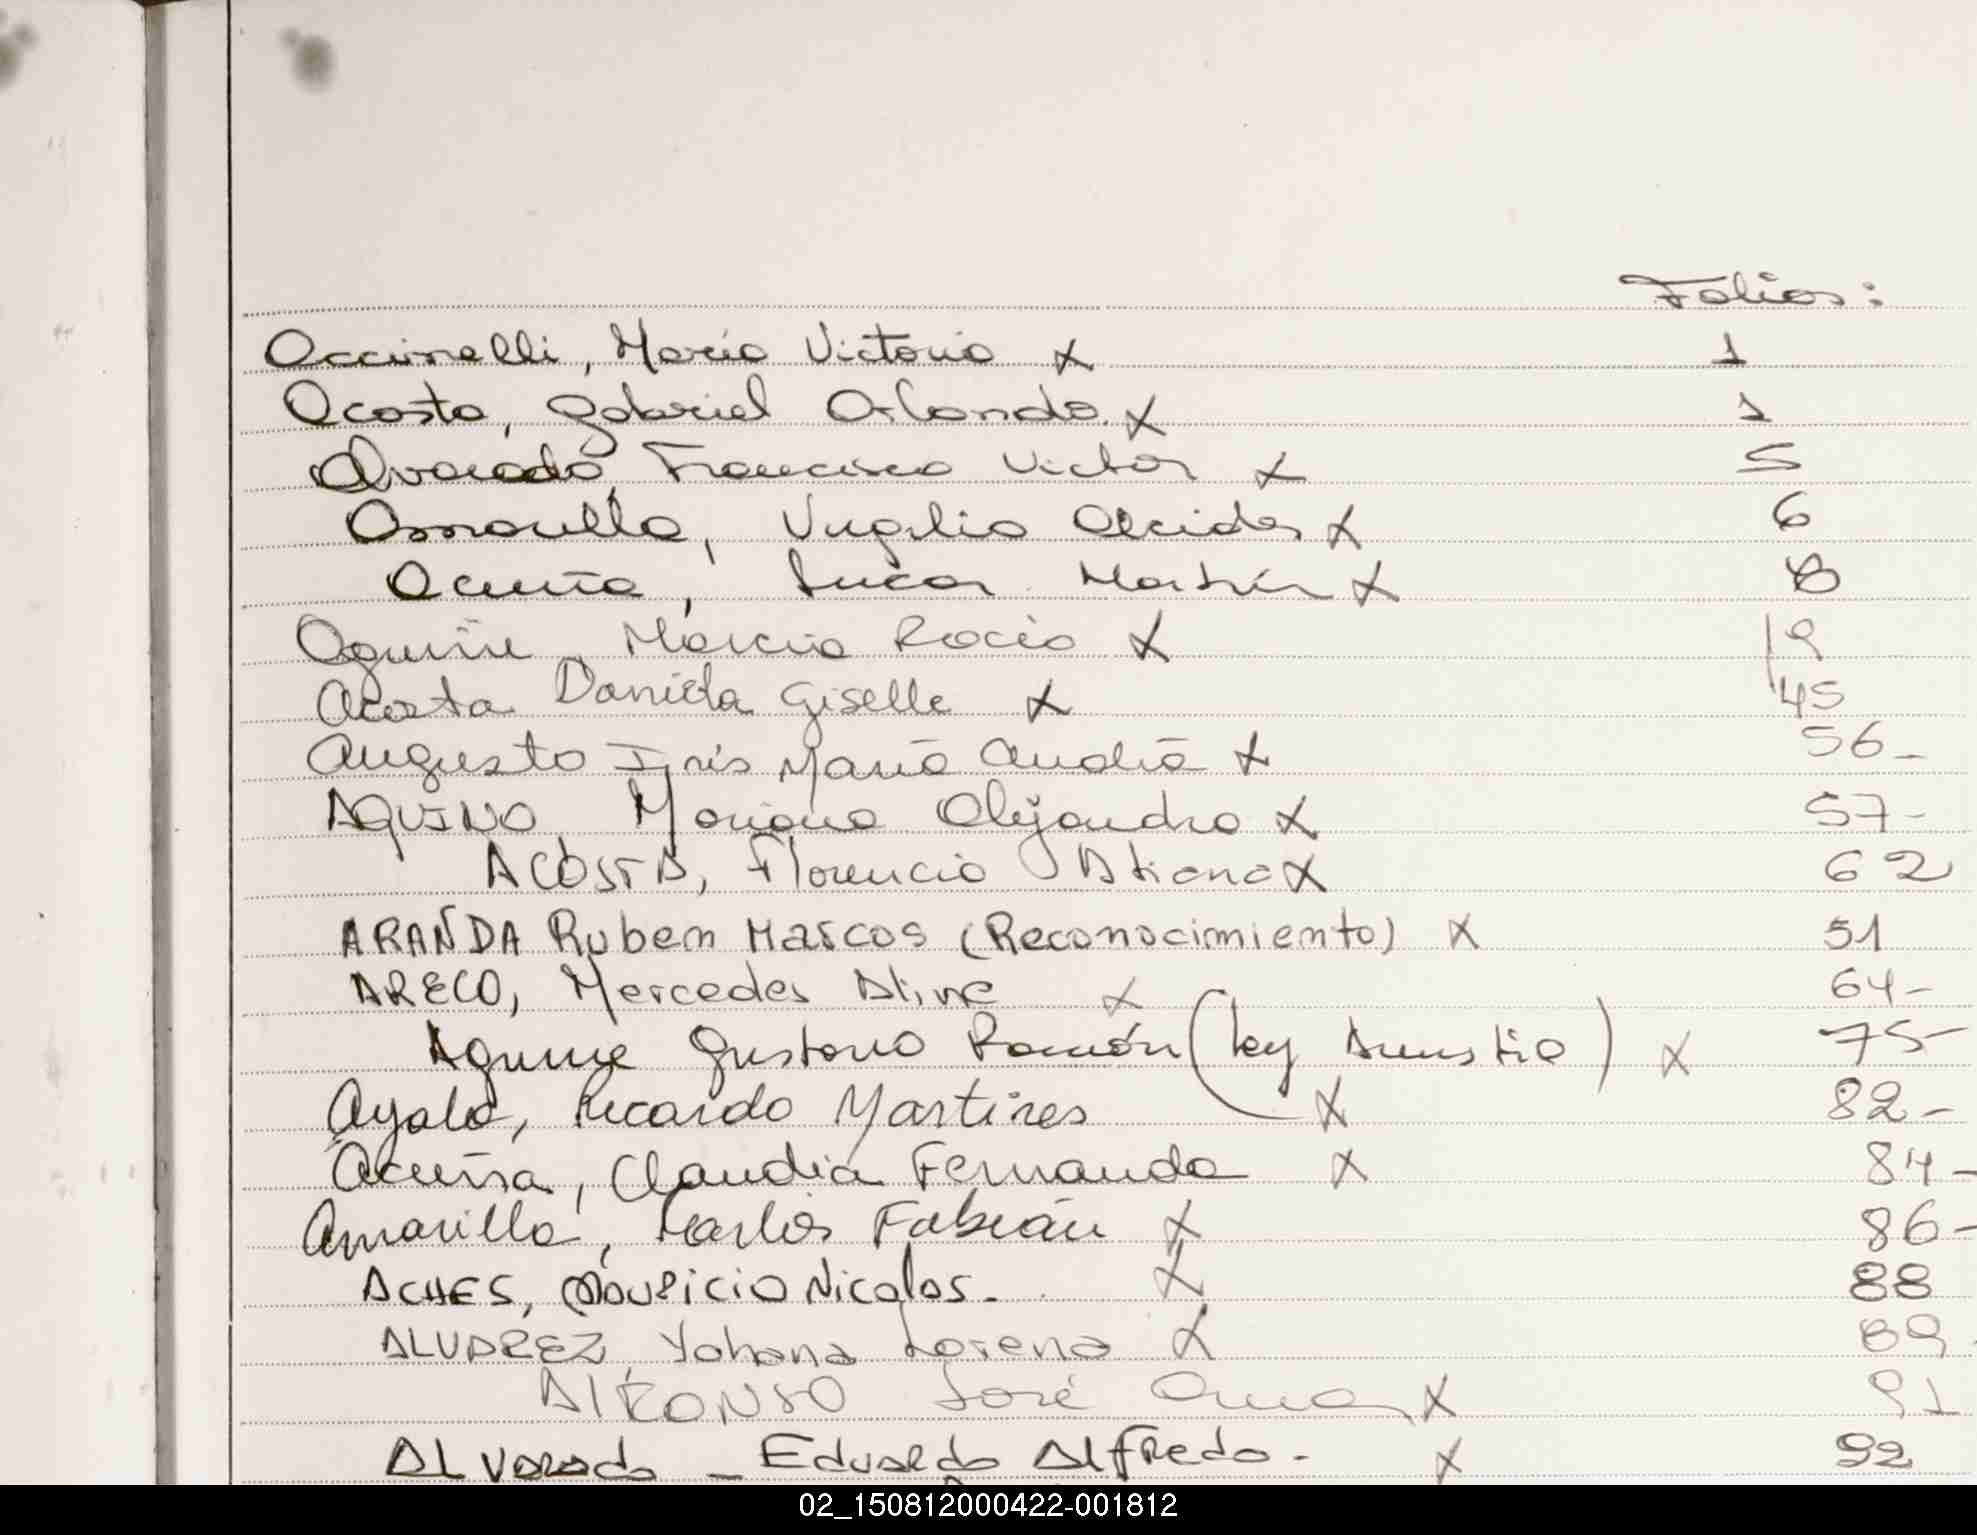 Folios:
Accinelli, María Victoria x 1
Acosta, Gabriel Orlando. x 1
Alvarado, Francisco Victor x 5
Amarilla, Virgilio Alcides x 6
Acuña, Lucas Martín x 8
Aguirre Marcia Rocio x 19
Acosta Daniela Giselle x 45
Augusto Iris María x 56-
AQUINO, Mariano Alejandro x 57-
ACOSTA, Florencia x 62
ARANDA Ruben Marcos (Reconocimiento) x 51
ARECO, Mercedes x 64-
Aguirre Gustavo Ramón (ley Amnistia) x 75-
Ayala, Ricardo Martires x 82-
Acuña, Claudia Fernanda x 84-
Amarilla, Carlos Fabián x 86-
ACHES, Mauricio Nicolas. x 88
ALVAREZ, Yohana Lorena x 89-
ALFONSO José Omar x 91
ALVarado - Eduardo Alfredo. x 92
02_150812000422-001812